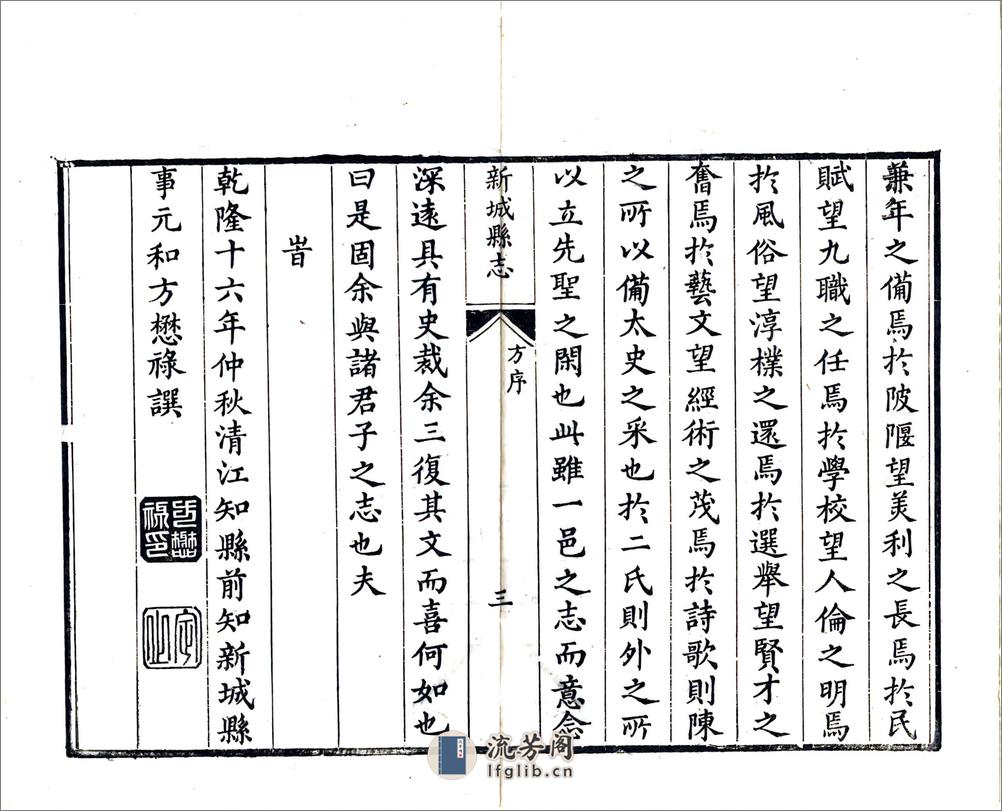 兼年之備焉於陂隁望美利之長焉於民
賦望九職之任焉於學校望人倫之明焉
於風俗望淳樸之還焉於選舉望賢才之
奮焉於藝文望經術之茂焉於詩歌則陳
之所以備太史之采也於二氏則外之所
以立先聖之閑也此雖一邑之志而意念
新城縣志
方序
三
深遠具有史裁余三復其文而喜何如也
曰是固余與諸君子之志也夫
旹
乾隆十六年仲秋清江知縣前知新城縣
事元和方懋祿譔
方懋祿印
流芳阁
lfglib.cn